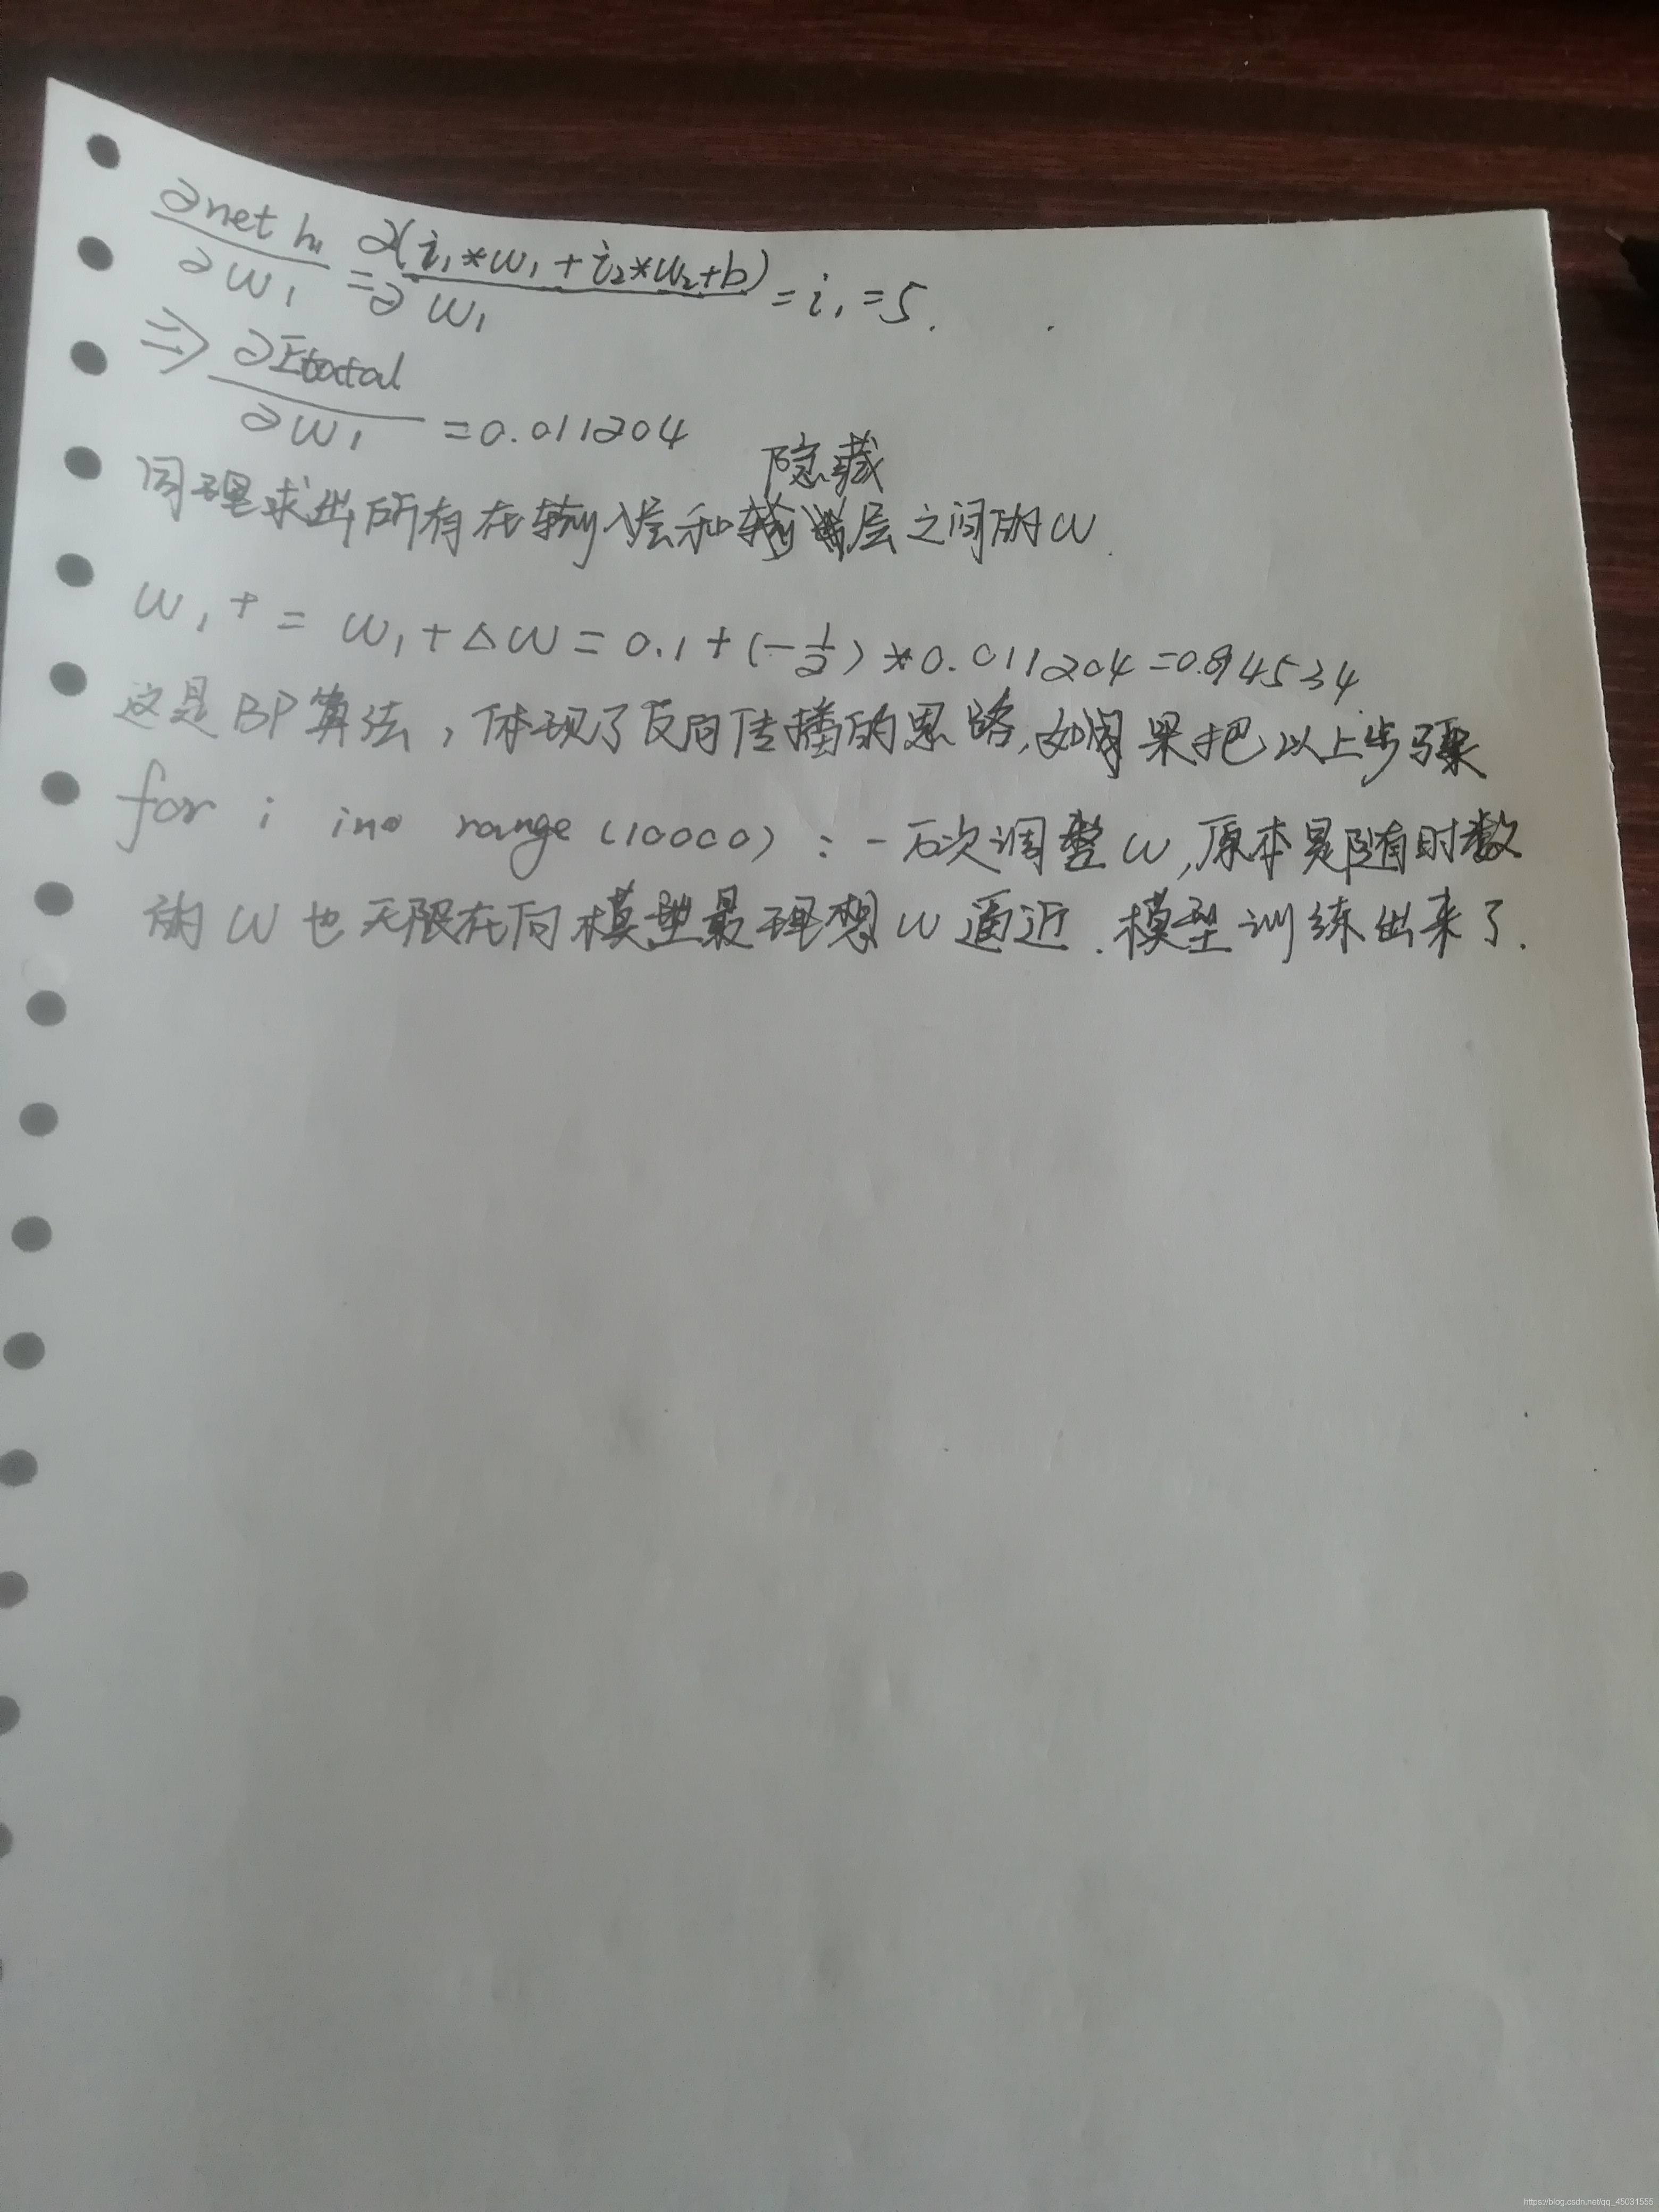 ∂net h₁/∂w₁ = ∂(i₁*w₁+i₂*w₂+b)/∂w₁ = i₁ = 5.
⇒ ∂Etotal/∂w₁ = 0.011204
隐藏
同理求出所有在输入层和层之间的w.
w₁⁺ = w₁+Δw = 0.1+(-1/2)*0.011204=0.094534
这是BP算法,体现了反向传播的思路,如果把以上步骤
for i in range(10000): 一万次调整w,原本是随时数
的w也无限在向模型最理想w逼近.模型训练出来了.
https://blog.csdn.net/qq_45031555